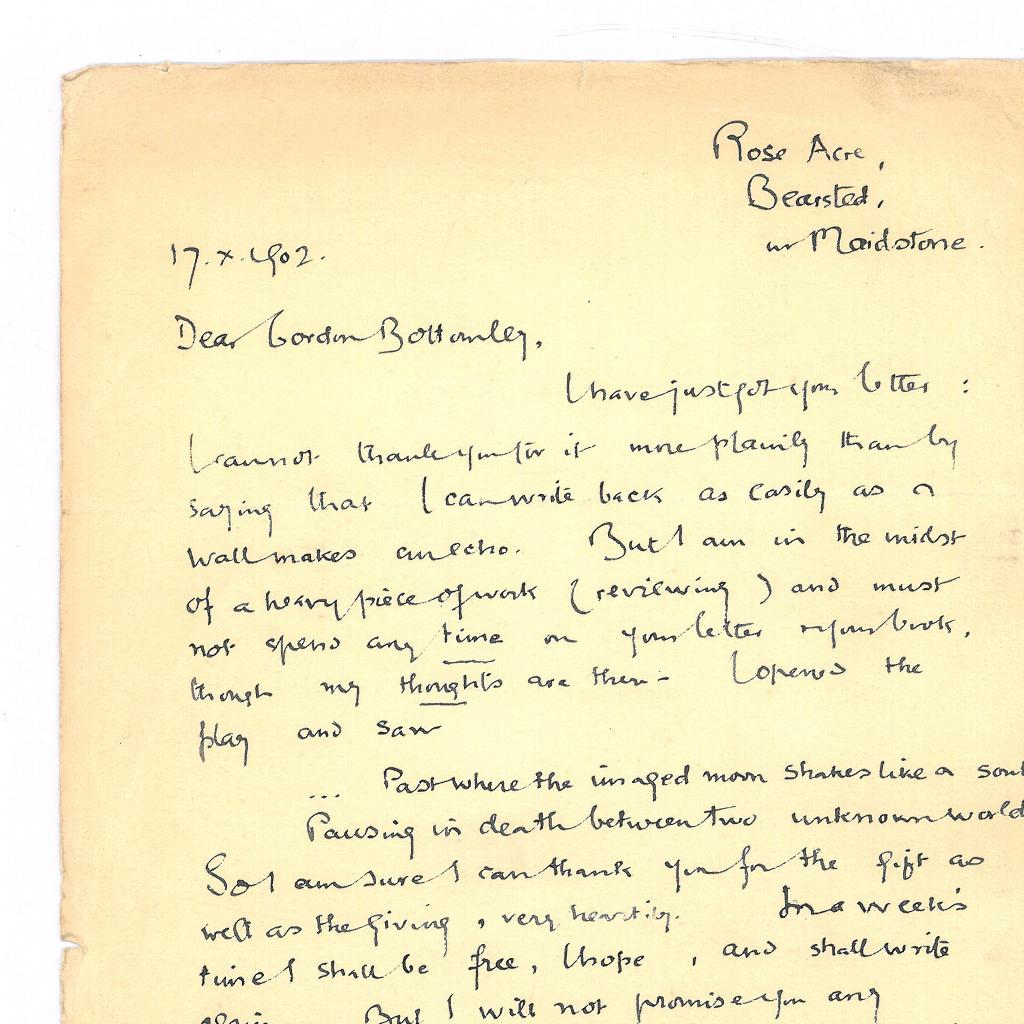 Rose Acre,
Bearsted,
nr Maidstone.
17.x.1902.
Dear Gordon Bottomley,
I have just got your letter:
I cannot thank you for it more plainly than by
saying that I can write back as easily as a
wall makes an echo. But I am in the midst
of a heavy piece of work (reviewing) and must
not spend any time on your letter & your book,
though my thoughts are there. I opened the
play and saw
... Past where the imaged moon shakes like a soul
Pausing in death between two unknown world
So I am sure I can thank you for the gift as
well as the giving, very heartily. In a week's
time I shall be free, I hope, and shall write
again. But I will not promise you any